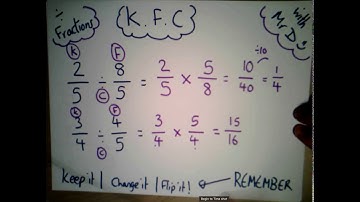 ÷ Fractions K.F.C with Mr D
K F
2/5 ÷ 8/5 = 2/5 × 5/8 = 10/40 = 1/4
÷10
C
K F
3/4 ÷ 4/5 = 3/4 × 5/4 = 15/16
C
Keep it | Change it | Flip it! REMEMBER